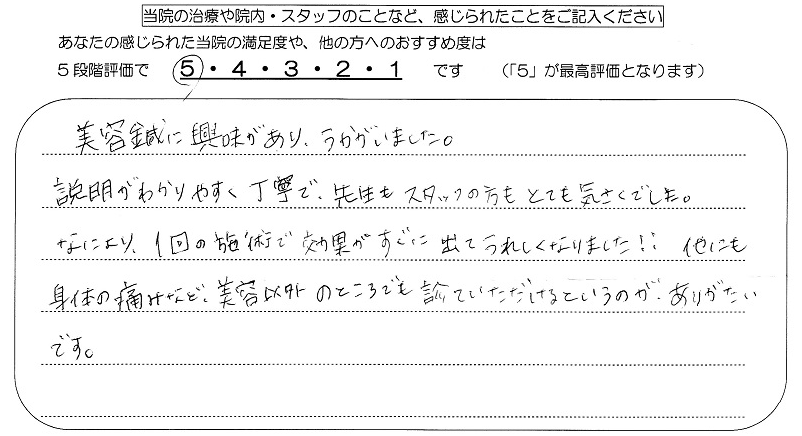 当院の治療や院内・スタッフのことなど、感じられたことをご記入ください
あなたの感じられた当院の満足度や、他の方へのおすすめ度は
5段階評価で 5・4・3・2・1 です (「5」が最高評価となります)
美容鍼に興味があり、うかがいました。
説明がわかりやすく丁寧で、先生もスタッフの方もとても気さくでした。
なにより、1回の施術で効果がすぐに出てうれしくなりました!! 他にも
身体の痛みなど、美容以外のところでも診ていただけるというのが、ありがたい
です。